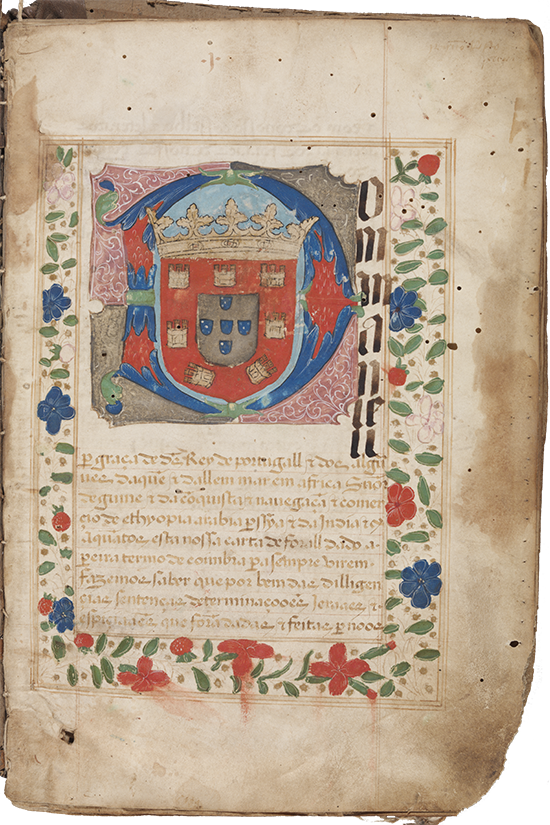 Dom manuel
per graça de ds Rey de portugall & dos algar
ves daquē & dallem mar em africa Sñor
de guine & da cōquista & navegaçā & comer
cio de ethyopia arabia perssya & da India
A quātos esta nossa carta de forall dado a
pera termo de coimbra pa sempre virem
fazemos saber que por bem das dilligen
cias sentenças determinaçooēs Jeraaes &
espiçiaaes que forā dadas & feitas per nos